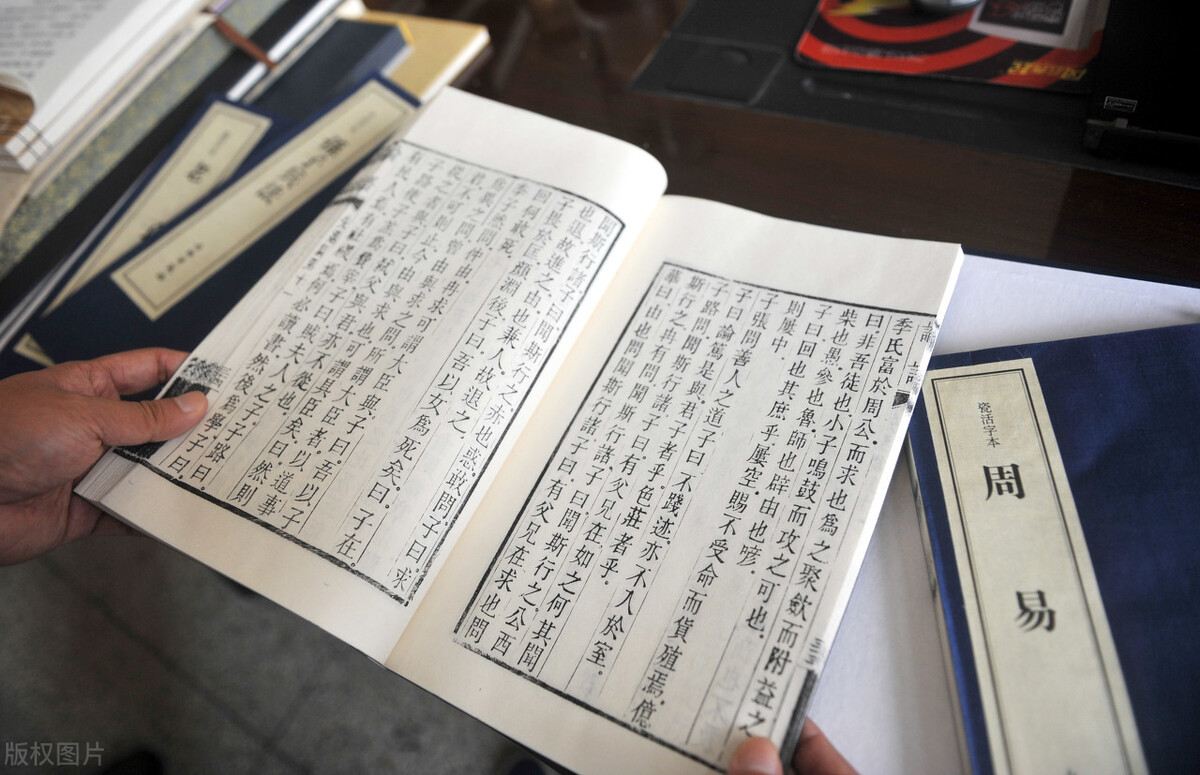 季氏富於周公。而求也為之聚斂而附益之
曰非吾徒也小子鳴鼓而攻之可也。
柴也愚。參也魯。師也辟。由也喭。
子曰回也其庶乎屢空。賜不受命而貨殖焉。億
則屢中。
子張問善人之道。子曰不踐迹。亦不入於室。
子曰論篤是與。君子者乎。色莊者乎。
子路問聞斯行諸。子曰有父兄在。如之何其聞
斯行之。冉有問聞斯行諸。子曰聞斯行之。公西
華曰。由也問聞斯行諸。子曰有父兄在。求也問
聞斯行諸。子曰聞斯行之。赤也惑。敢問。子曰求
也退。故進之。由也兼人。故退之。
子畏於匡。顏淵後。子曰。吾以女為死矣。曰。子在。
回何敢死。
季子然問。仲由冉求可謂大臣與。子曰。吾以子
為異之問。曾由與求之問。所謂大臣者。以道事
君。不可則止。今由與求也。可謂具臣矣。曰然則
從之者與。子曰。弑父與君。亦不從也。
子路使子羔為費宰。子曰。賊夫人之子。子路曰。
有民人焉。有社稷焉。何必讀書。然後為學。子曰。
瓷活字本
周易
版权图片